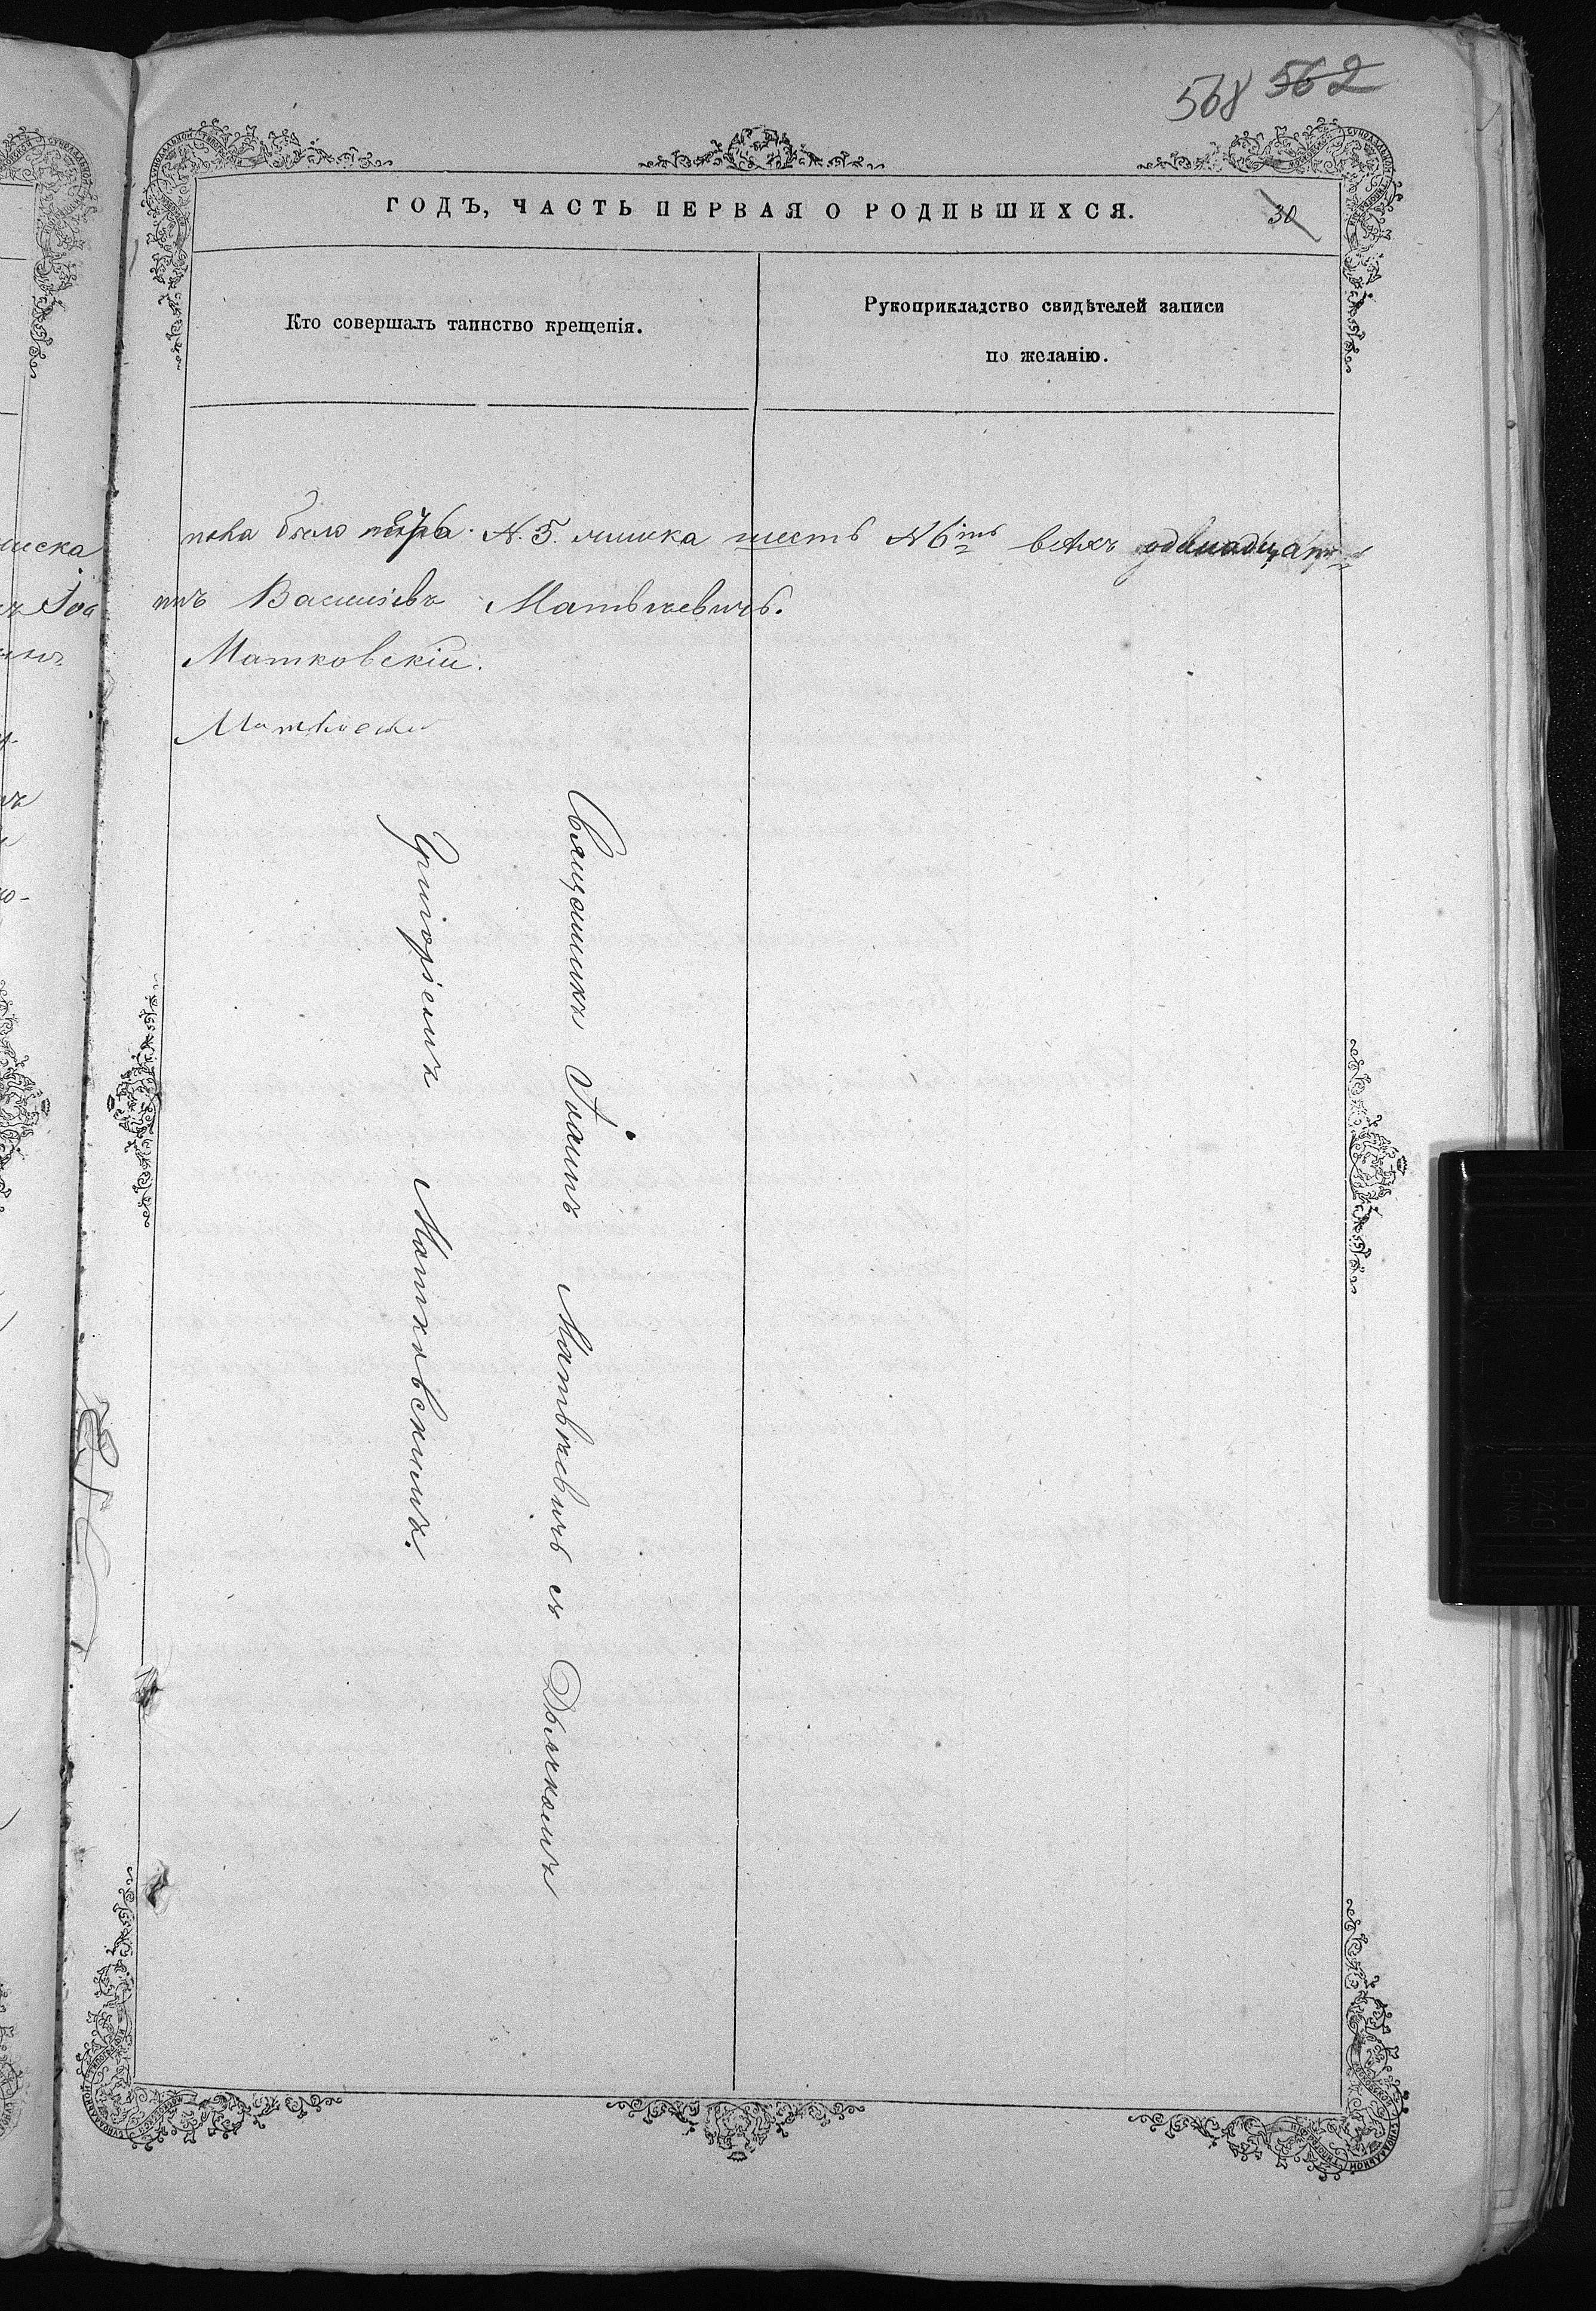 568 562
ГОДЪ, ЧАСТЬ ПЕРВАЯ О РОДИВШИХСЯ.
30
Кто совершалъ таинство крещенія.
Рукоприкладство свидѣтелей записи
по желанію.
пола было N. 5. женска шесть N 6 всѣхъ одинадцать
Василіевъ Матвѣевичъ.
Матковскій.
Священникъ Іоаннъ Матвѣевичъ съ Дьячкомъ
Григоріемъ Матковскимъ.